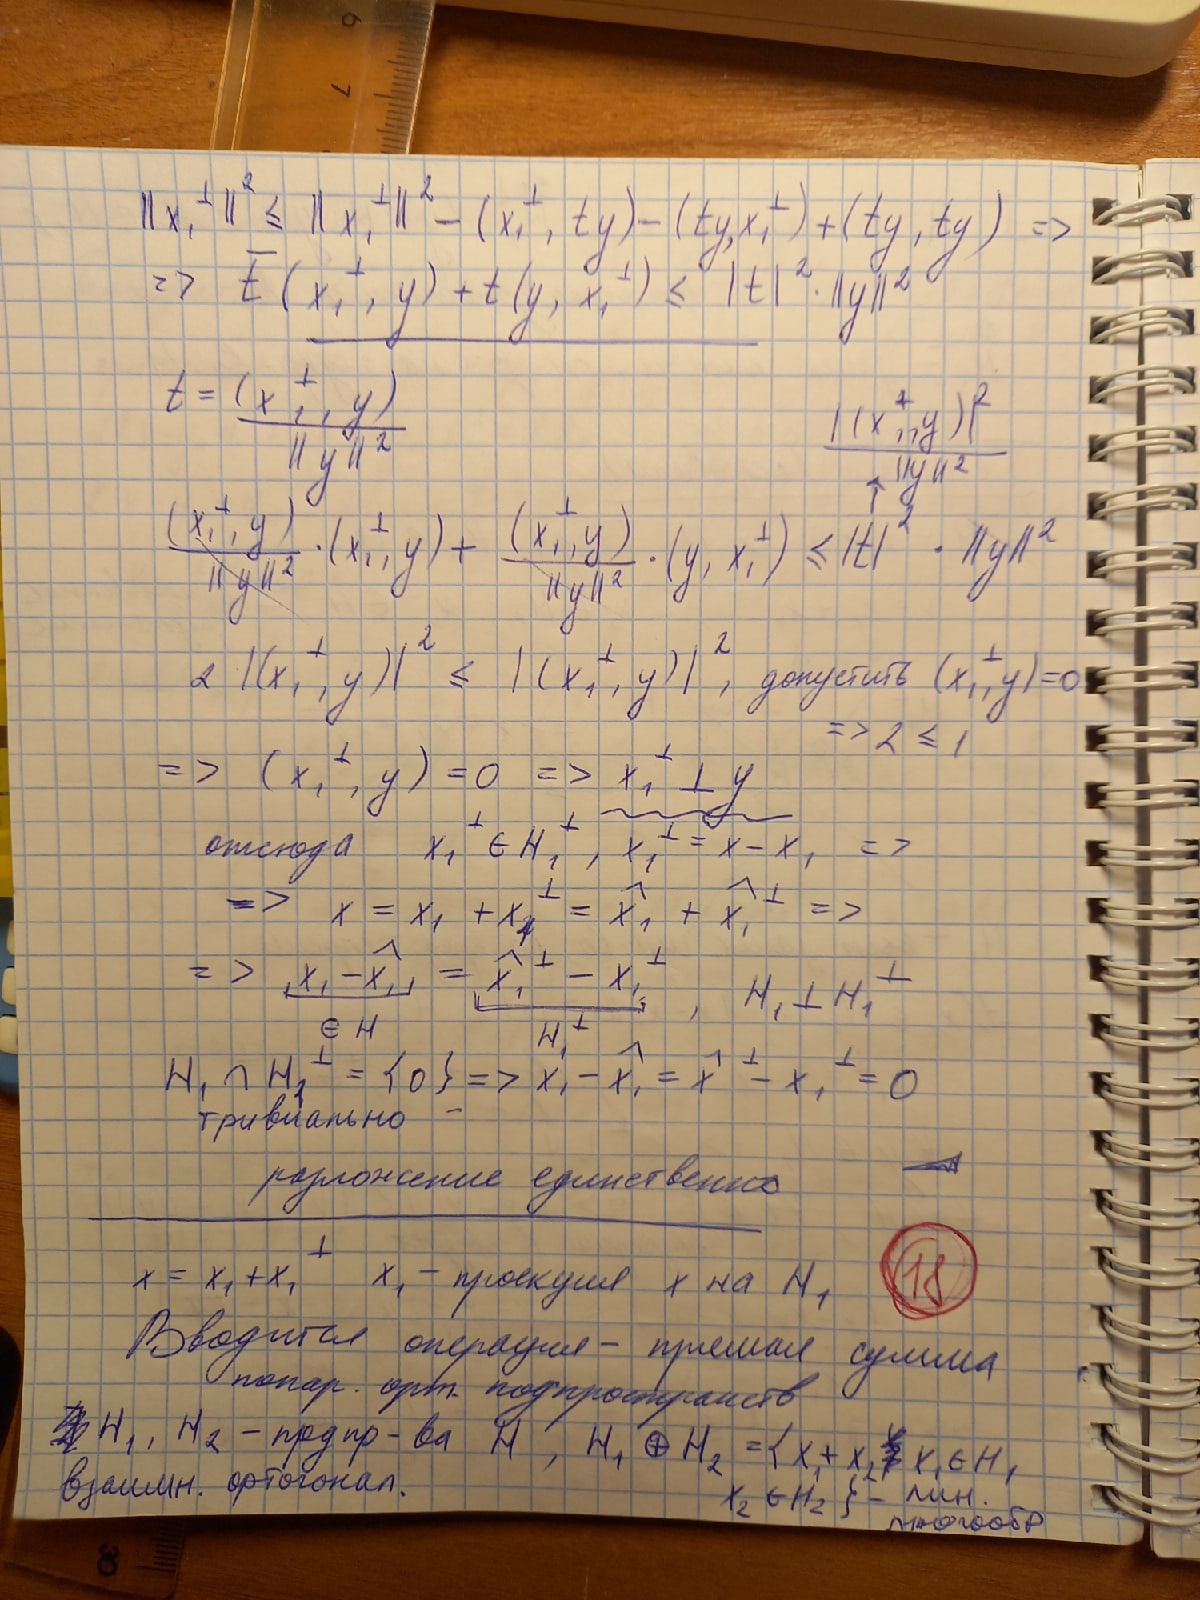 6
7
||x₁^⊥||² ≤ ||x₁^⊥||² - (x₁^⊥, ty) - (ty, x₁^⊥) + (ty, ty) =>
=> t̄ (x₁^⊥, y) + t(y, x₁^⊥) ≤ |t|² · ||y||²
t = (x₁^⊥, y) / ||y||²
|(x₁^⊥, y)|² / ||y||²
↑
(x₁^⊥, y) / ||y||² · (x₁^⊥, y) + (x₁^⊥, y) / ||y||² · (y, x₁^⊥) ≤ |t|² · ||y||²
2 |(x₁^⊥, y)|² ≤ |(x₁^⊥, y)|², допустить (x₁^⊥, y) = 0
=> 2 ≤ 1
=> (x₁^⊥, y) = 0 => x₁^⊥ ⊥ y
отсюда x₁^⊥ ∈ H₁^⊥, x₁^⊥ = x - x₁ =>
=> x = x₁ + x₁^⊥ = x̂₁ + x̂₁^⊥ =>
=> x₁ - x̂₁ = x̂₁^⊥ - x₁^⊥, H₁ ⊥ H₁^⊥
∈ H H₁^⊥
H₁ ∩ H₁^⊥ = {0} => x₁ - x̂₁ = x̂^⊥ - x₁^⊥ = 0
тривиально -
разложение единственно
x = x₁ + x₁^⊥ x₁ - проекция x на H₁
18
Вводится операция - прямая сумма
попар. орт. подпространств
H₁, H₂ - подпр-ва H, H₁ ⊕ H₂ = {x₁ + x₂ x₁ ∈ H₁
взаимн. ортогонал.
x₂ ∈ H₂} - лин.
многообр
30